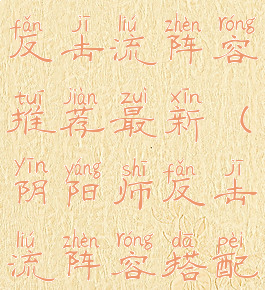 fǎn jī liú zhèn róng
反击流阵容
tuī jiàn zuì xīn
推荐最新（
yīn yáng shī fǎn jī
阴阳师反击
liú zhèn róng dā pèi
流阵容搭配